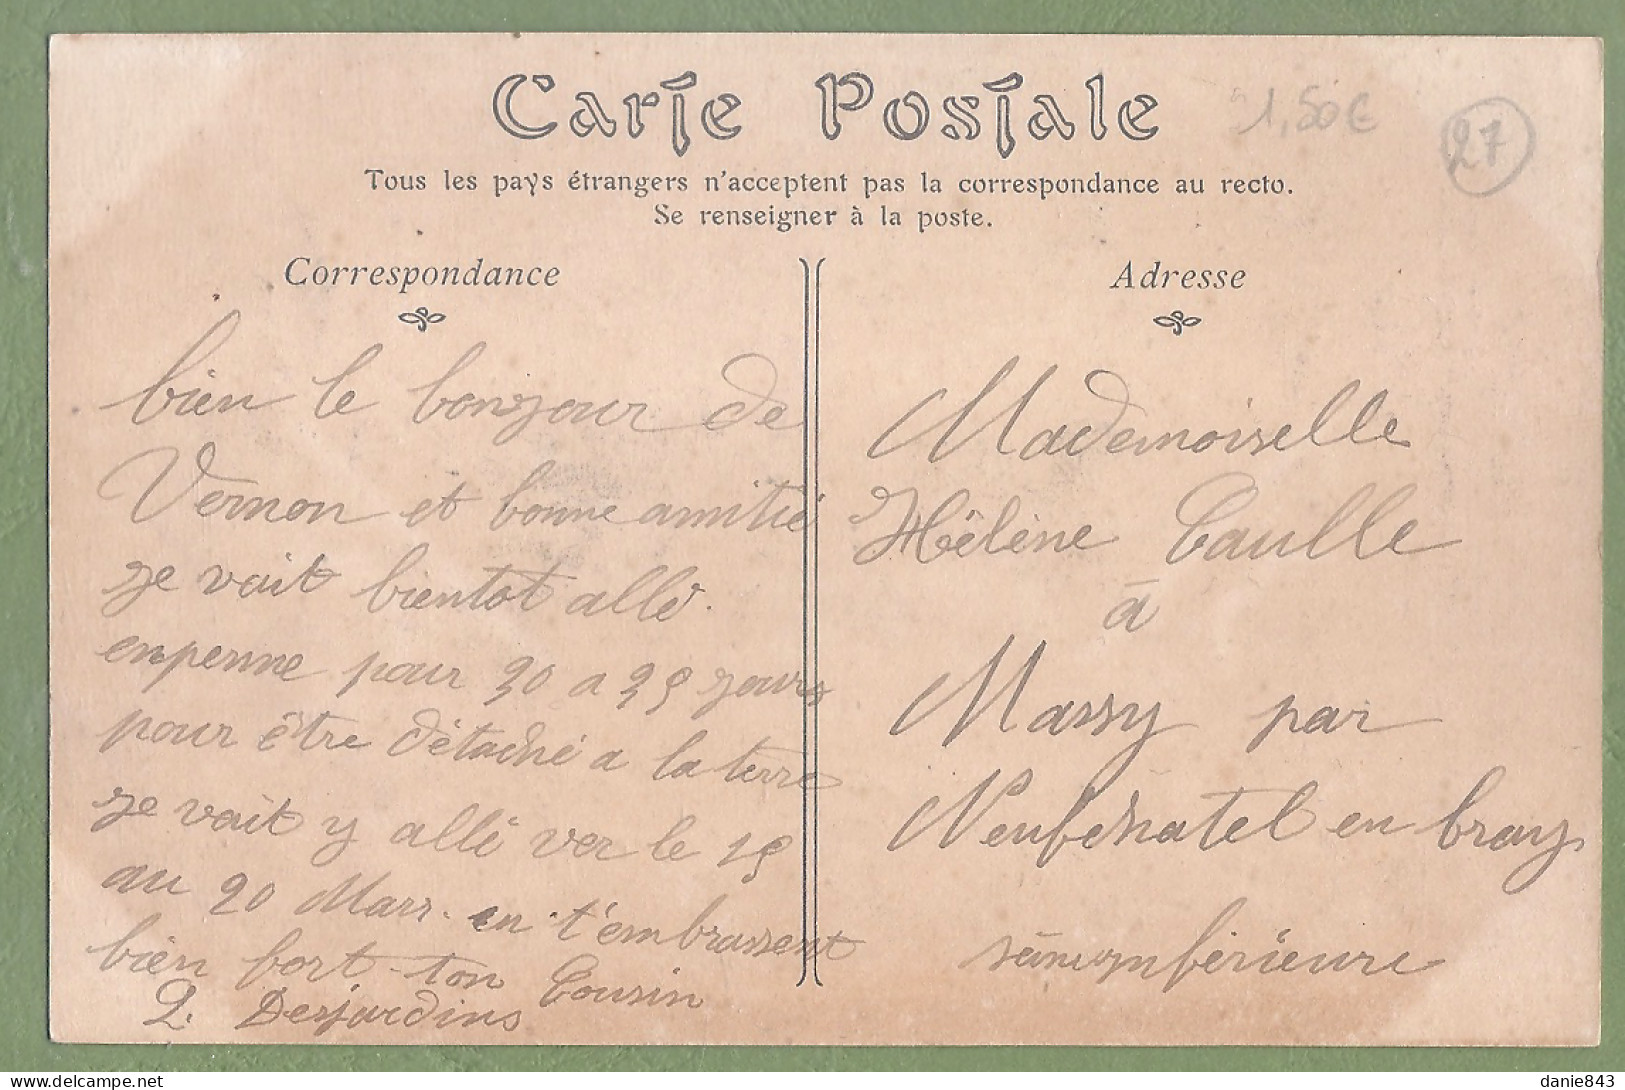 Carte Postale
1,50€
27
Tous les pays étrangers n'acceptent pas la correspondance au recto.
Se renseigner à la poste.
Correspondance
bien le bonjour de
Vernon et bonne amitié
je vait bientot allé
enpenne pour 30 a 35 jours
pour être détaché a la terre
je vait y allé ver le 15
au 20 Mars. en t'embrassent
bien fort ton Cousin
L. Desjardins
Adresse
Mademoiselle
Hélène Caulle
à
Massy par
Neufchatel en bray
inférieure
danie843